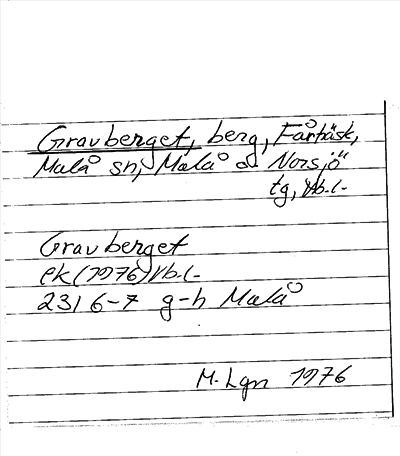 Gravberget, berg, Fårträsk,
Malå sn, Malå o. Norsjö
tg, Vb.l.
Gravberget
ek (1976) Vb.l.
231 6-7 g-h Malå
M. Lgn 1976